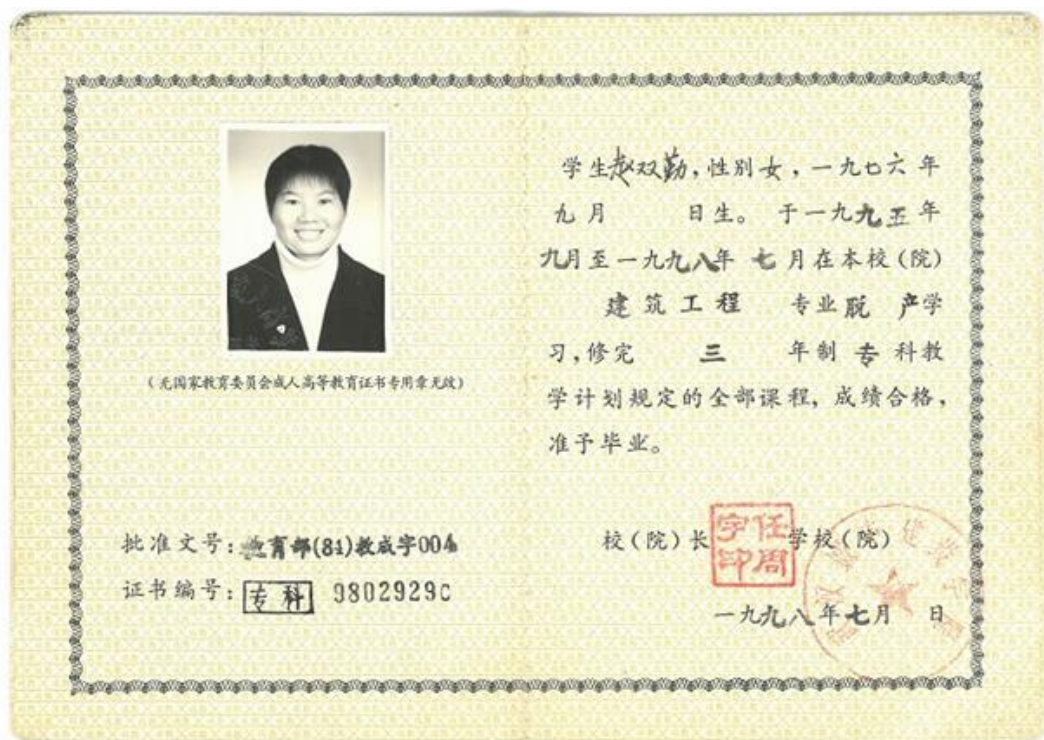 (无国家教育委员会成人高等教育证书专用章无效)
批准文号:教育部(84)教成字004
证书编号:专科 9802929C
学生赵双勤,性别女,一九七六年
九月 日生。于一九九五年
九月至一九九八年 七月在本校(院)
建筑工程 专业脱 产学
习,修完 三 年制 专 科教
学计划规定的全部课程,成绩合格,
准予毕业。
校(院)长 学校(院)
任周字印
一九九八年七月 日